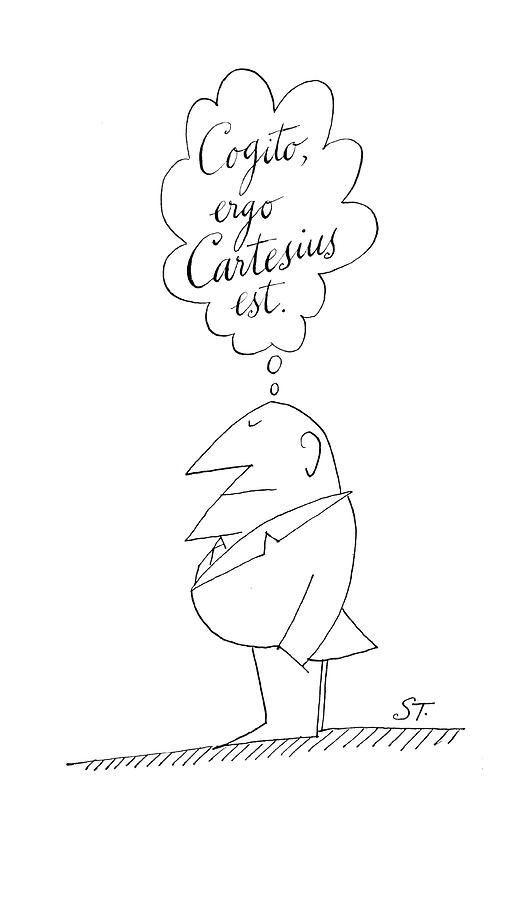 Cogito,
ergo
Cartesius
est.
ST.